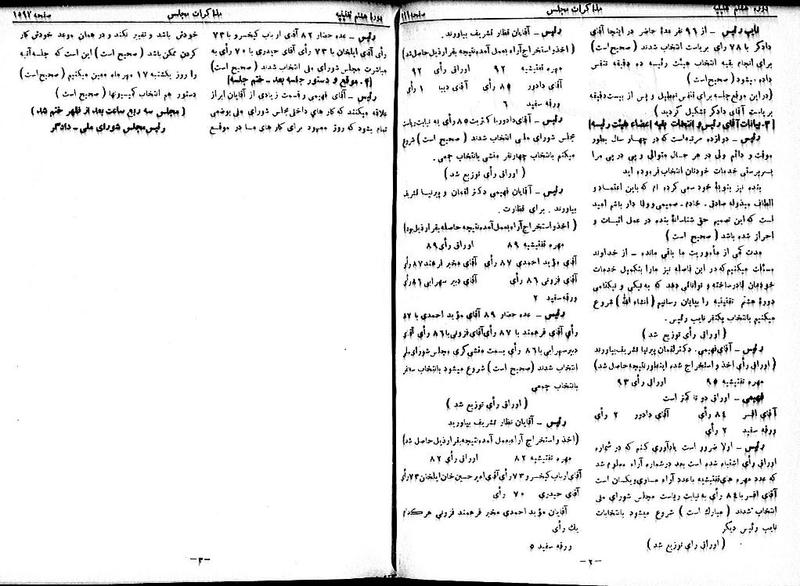 دوره هشتم تقنینیه
مذاکرات مجلس
صفحه ۱۱۱
نایب رئیس - از ۹۶ نفر عدهٔ حاضر در اینجا آقای
دادگر با ۷۸ رأی بریاست انتخاب شدند (صحیح است)
برای انجام بقیه انتخاب هیئت رئیسه ده دقیقه تنفس
داده میشود (صحیح است)
(در این موقع جلسه برای تنفس تعطیل و پس از بیست دقیقه
بریاست آقای دادگر تشکیل گردید)
[۳. بیانات آقای رئیس و انتخاب بقیه اعضاء هیئت رئیسه]
رئیس - دوازده مرتبه است که در چهار سال بطور
موقت و دائم ولی در هر حال متوالی و پی در پی مرا
بسرپرستی خدمات خودتان انتخاب فرموده اید
بنده نیز بنوبهٔ خود سعی کرده ام که باین اعتماد و
الطاف مبذوله صادق. خادم. صمیمی و وفادار باشم امید
است که این تصمیم حق شناسانهٔ بنده در عمل اثبات و
احراز شده باشد (صحیح است)
مدت کمی از مأموریت ما باقی مانده - از خداوند
مسئلت میکنیم که در این فاصله نیز ما را بتکمیل خدمات
خودمان قادر ساخته و توانائی دهد که به نیکی و نیکنامی
دورهٔ هشتم تقنینیه را بپایان رسانیم (انشاء الله) شروع
میکنیم بانتخاب یکنفر نایب رئیس.
(اوراق رأی توزیع شد)
رئیس - آقای فهیمی. دکتر لقمان پیرنیا تشریف بیاورند
(اوراق رأی اخذ و استخراج شده اینطور نتیجه حاصل شد)
مهره تفتیشیه ۹۵ اوراق رأی ۹۳
فهیمی - اوراق دو تا کمتر است
آقای افسر ۸۴ رأی آقای دادور ۲ رأی
ورقه سفید ۲ رأی
رئیس - اولا ضرور است یادآوری کنم که در شماره
اوراق رأی اشتباه شده است بعد در شماره آراء معلوم شد
که عدد مهره های تفتیشیه با عدد آراء مساوی و یکسان است
آقای افسر با ۸۴ رأی به نیابت ریاست مجلس شورای ملی
انتخاب شدند (مبارک است) شروع میشود بانتخابات
نایب رئیس دیگر
(اوراق رای توزیع شد)
- ۲ -
رئیس - آقایان نظار تشریف بیاورند.
(اخذ و استخراج آراء بعمل آمده نتیجه بقرار ذیل حاصل شد)
مهره تفتیشیه ۹۲ اوراق رأی ۹۲
آقای دادور ۸۵ رأی آقای دیبا ۱ رأی
ورقه سفید ۶
رئیس - آقای دادور با کثریت ۸۵ رأی به نیابت ریاست
مجلس شورای ملی انتخاب شدند (صحیح است) شروع
میکنم بانتخاب چهار نفر منشی بانتخاب جمعی.
(اوراق رأی توزیع شد)
رئیس - آقایان فهیمی دکتر لقمان و پیرنیا تشریف
بیاورند. برای نظارت.
(اخذ و استخراج آراء بعمل آمده نتیجه حاصله بقرار ذیل بود)
مهره تفتیشیه ۸۹ اوراق رأی ۸۹
آقای مؤید احمدی ۸۷ رأی آقای مخبر فرهمند ۸۷ رأی
آقای فزونی ۸۶ رأی آقای دبیر سهرابی ۸۶ رأی
ورقه سفید ۲
رئیس - عده حضار ۸۹ آقای مؤید احمدی با ۸۷
رأی آقای فرهمند با ۸۷ رأی آقای فزونی با ۸۶ رأی آقای
دبیر سهرابی با ۸۶ رأی بسمت منشی گری مجلس شورای ملی
انتخاب شدند (صحیح است) شروع میشود بانتخاب سه نفر
بانتخاب جمعی
(اوراق رأی توزیع شد)
رئیس - آقایان نظار تشریف بیاورید
(اخذ و استخراج آراء بعمل آمده نتیجه بقرار ذیل حاصل شد)
مهره تفتیشیه ۸۲ اوراق رأی ۸۲
آقای ارباب کیخسرو ۷۳ رأی آقای امیر حسین خان ایلخان ۷۳ رأی
آقای حیدری ۷۰ رأی
آقایان مؤید احمدی مخبر فرهمند فزونی هر کدام
یک رأی
ورقه سفید ۵
دوره هشتم تقنینیه
مذاکرات مجلس
صفحه ۱۵۹۲
رئیس - عده حضار ۸۲ آقای ارباب کیخسرو با ۷۳
رأی آقای ایلخان با ۷۳ رأی آقای حیدری با ۷۰ رأی به
مباشرت مجلس شورای ملی انتخاب شدند (صحیح است)
[۴. موقع و دستور جلسه بعد - ختم جلسه]
رئیس - آقای فهیمی و قسمت زیادی از آقایان ابراز
علاقه میکنند که کار های داخلی مجلس شورای ملی بوضعی
تمام بشود که روز معهود برای کار های ما در موقع
خودش باشد و تغییر نکند و در همان موعد خودش کار
کردن ممکن باشد (صحیح است) این است که جلسه آتیه
را روز یکشنبه ۱۷ مهر ماه معین میکنیم (صحیح است)
دستور هم انتخاب کمیسیونها (صحیح است)
(مجلس سه ربع ساعت بعد از ظهر ختم شد)
رئیس مجلس شورای ملی - دادگر
- ۳ -